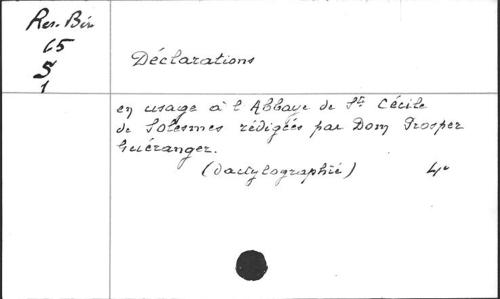 Res. Bév.
65
S
1
Déclarations
en usage à l'Abbaye de Ste Cécile
de Solesmes rédigées par Dom Prosper
Guéranger.
(dactylographié) 4°